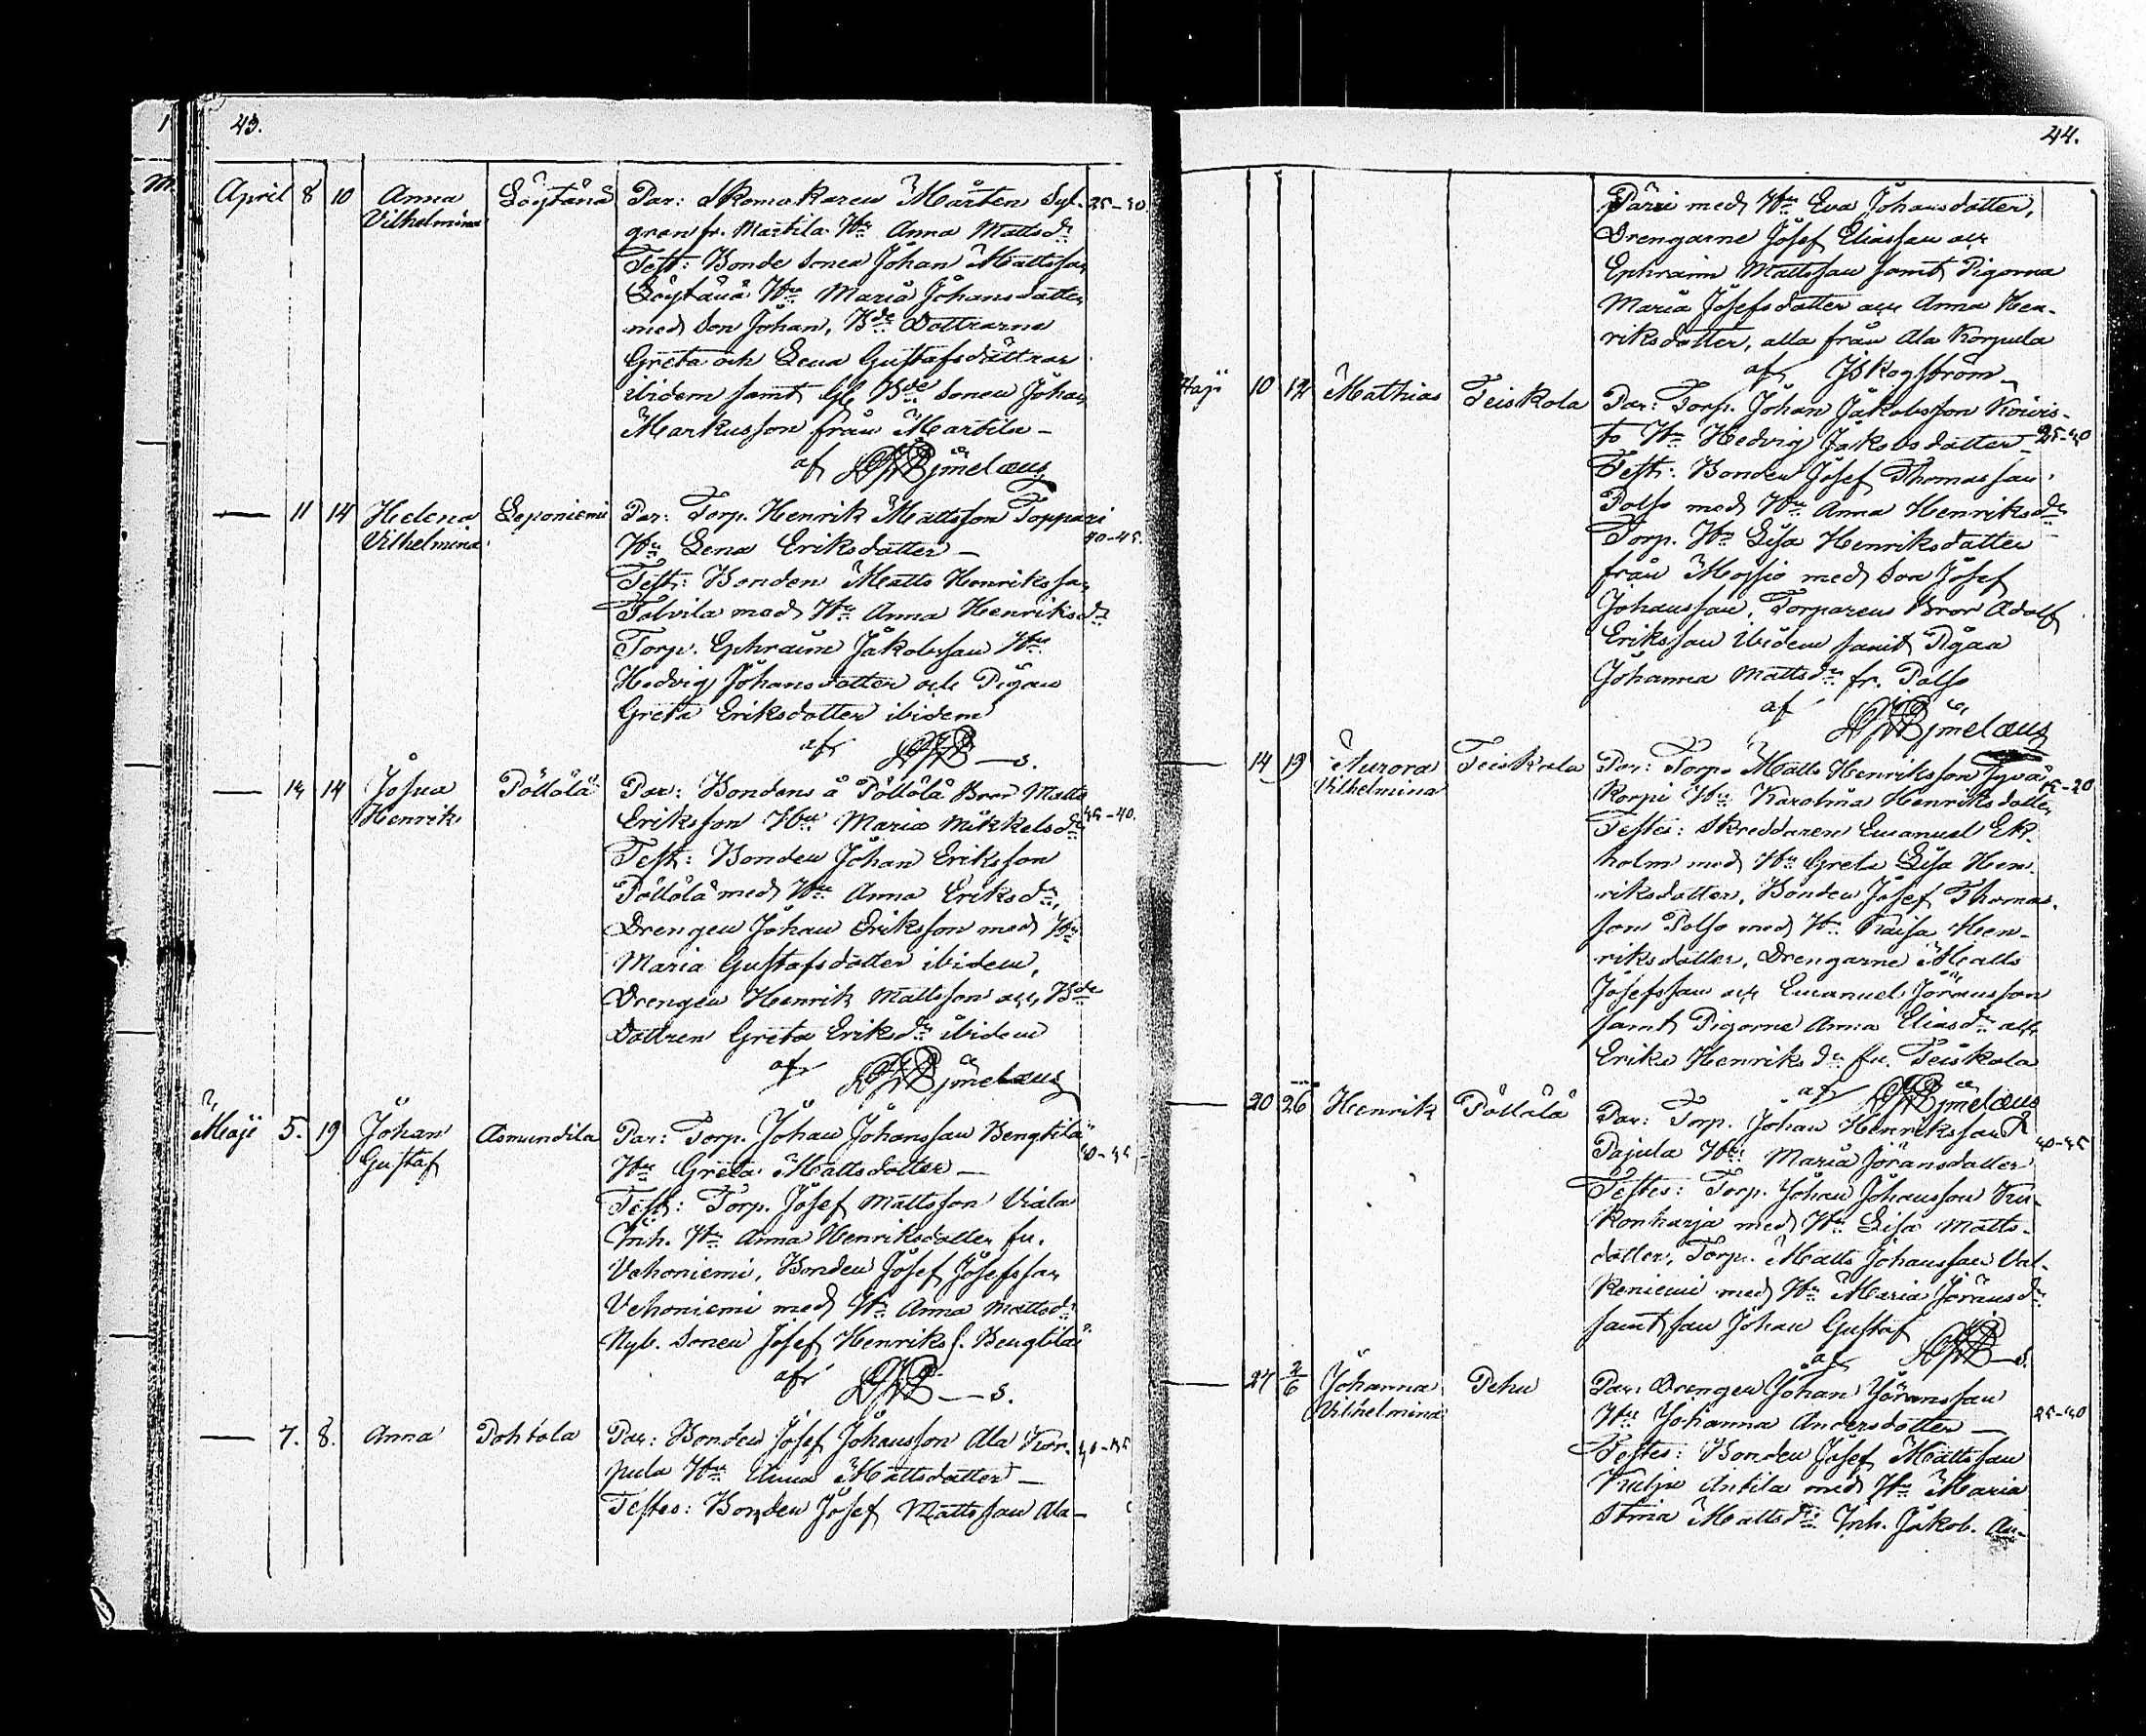 43.
April 8 10 Anna Vilhelmina Löytänä Par: Skomakaren Mårten Syl- 25-30.
gren fr. Marttila Hu Anna Mattsdr
Test: Bonde Sonen Johan Mattsson
Löytänä Hu Maria Johansdotter
med Son Johan, Bde Dottrarne
Greta och Lena Gustafsdöttrar
ibidem samt Bde Sonen Johan
Markusson från Martila –
af
— 11 14 Helena Vilhelmina Leponiemi Par: Torp. Henrik Mattsson Toppari 40-45.
Hu Lena Eriksdotter –
Test: Bonden Matts Henriksson
Tolvila med Hu Anna Henriksdr
Torp. Ephraim Jakobsson Hu
Hedvig Johansdotter och Pigan
Greta Eriksdotter ibidem
af
— 14 Josua Henrik Pöllölä Par: Bondens å Pöllölä Bror Matts
Eriksson Hu Maria Mikkelsdr 35-40.
Test: Bonden Johan Eriksson
Pöllölä med Hu Anna Eriksdr,
Drengen Johan Eriksson med Hu
Maria Gustafsdotter ibidem,
Drengen Henrik Mattsson och Bde
Dottren Greta Eriksdr ibidem
af
Maji 5. 19 Johan Gustaf Asmundila Par: Torp. Johan Johansson Bengtilä
Hu Greta Mattsdotter –
Test: Torp. Josef Mattsson Viala
Inh. Hu Anna Henriksdotter fr.
Vehoniemi, Bonden Josef Josefsson
Vehoniemi med Hu Anna Mattsdr
Nyb. Sonen Josef Henrikss. Bengtilä
af
— 7. 8. Anna Pohtola Par: Bonden Josef Johansson Ala Kor-
pula Hu Anna Mattsdotter –
Testes: Bonden Josef Mattsson Ala-
44.
Päri med Hu Eva Johansdotter,
Drengarne Josef Eliasson och
Ephraim Mattsson samt Pigorna
Maria Josefsdotter och Anna Hen-
riksdotter, alla från Ala Korpula
af J Skogström
Maji 10 12 Mathias Teiskola Par: Torp. Johan Jakobsson Koivis-
to Hu Hedvig Jakobsdotter – 25-30
Test: Bonden Josef Thomasson
Polso med Hu Anna Henriksdr
Torp. Hu Lisa Henriksdotter
från Mossio med Son Josef
Johansson, Torparen Bror Adolf
Eriksson ibidem samt Pigan
Johanna Mattsdr fr. Polso
af
— 14 19 Aurora Vilhelmina Teiskola Par: Torp. Matts Henriksson Syvä 15-20
Korpi Hu Karolina Henriksdotter
Testes: Skreddaren Emanuel Ek-
holm med Hu Greta Lisa Hen-
riksdotter, Bonden Josef Thomas-
son Polso med Hu Kaisa Hen-
riksdotter, Drengarne Matts
Josefsson och Emanuel Jöransson
samt Pigorna Anna Eliasdr och
Erika Henriksdr fr. Teiskola
af
— 20 26 Henrik Pöllölä Par: Torp. Johan Henriksson
Pajula Hu Maria Jöransdotter 30-35
Testes: Torp. Johan Johansson Ku-
konharja med Hu Lisa Matts-
dotter, Torp. Matts Johansson Val-
keniemi med Hu Maria Jöransdr
samt son Johan Gustaf
af
— 27 2/6 Johanna Vilhelmina Pehu Par: Drengen Johan Jöransson
Hu Johanna Andersdotter – 25-30
Testes: Bonden Josef Mattsson
Kulju Antila med Hu Maria
Stina Mattsdr Inh. Jakob An-